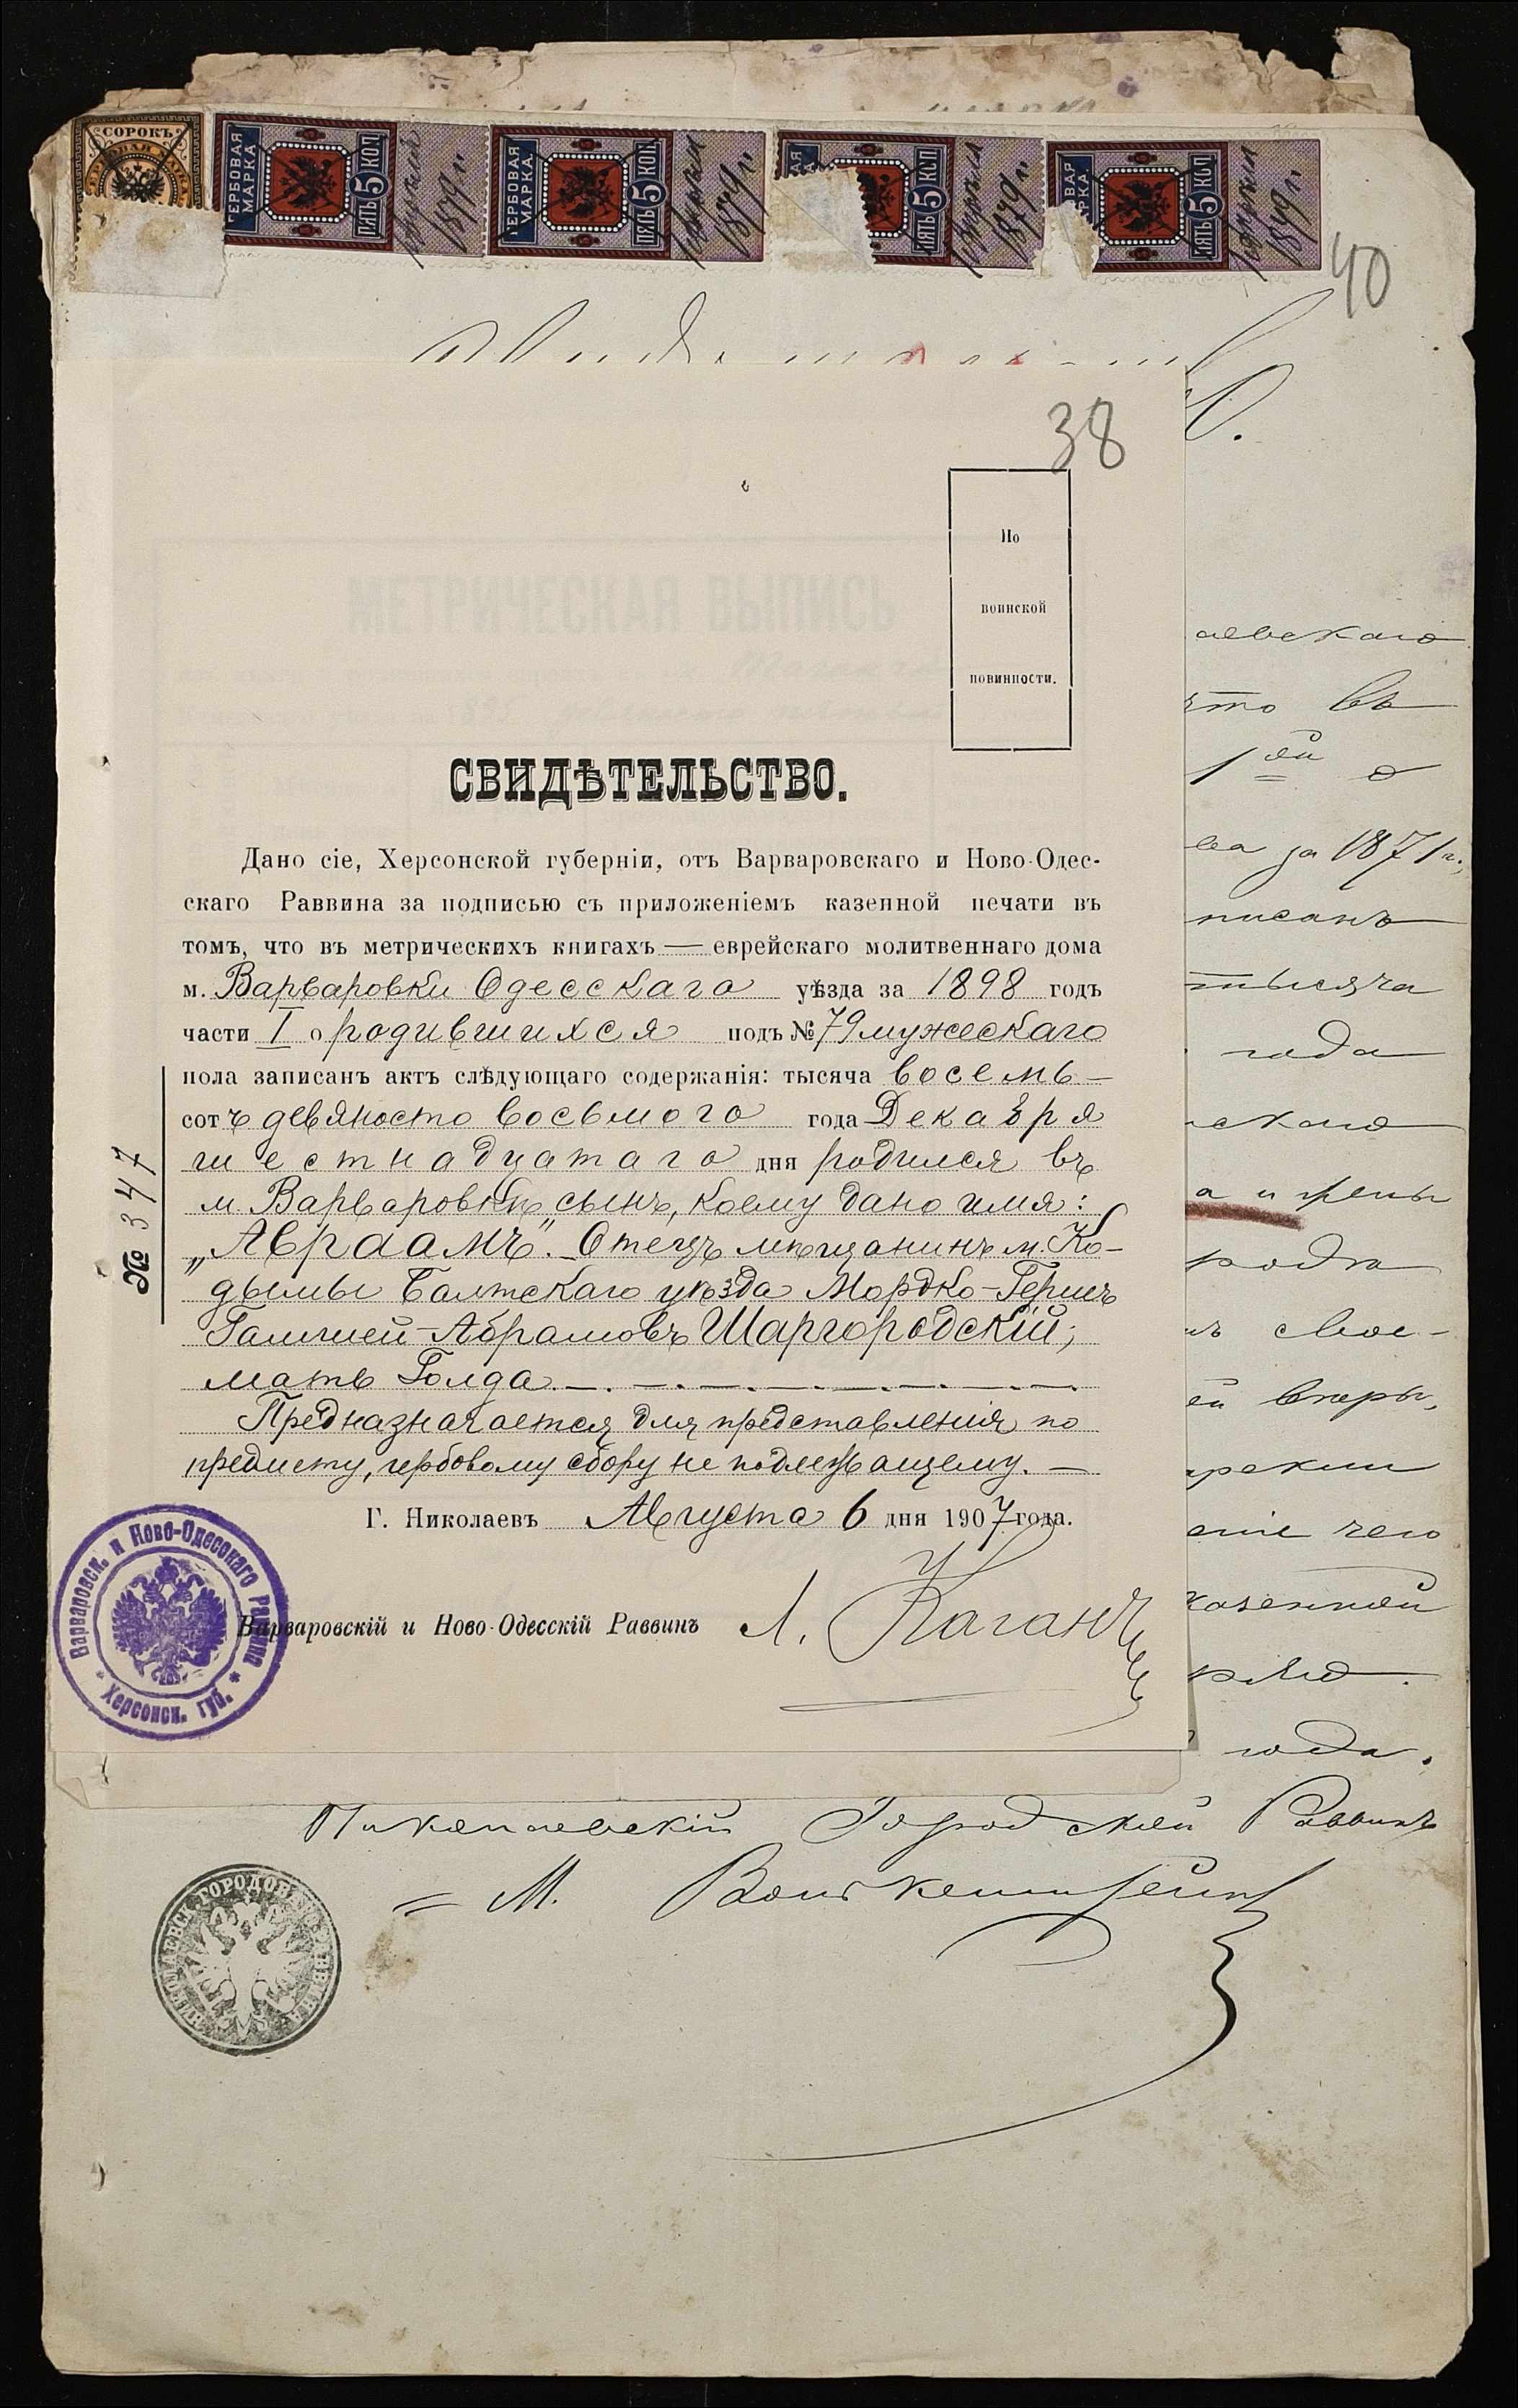 СОРОКЪ
ГЕРБОВАЯ МАРКА ПЯТЬ 5 КОП
1879 г.
ГЕРБОВАЯ МАРКА ПЯТЬ 5 КОП.
1879 г.
ПЯТЬ 5 КОП
1879 г.
ПЯТЬ 5 КОП
1879 г.
40
38
По
воинской
повинности.
МЕТРИЧЕСКАЯ ВЫПИСЬ
СВИДѢТЕЛЬСТВО.
Дано сіе, Херсонской губерніи, отъ Варваровскаго и Ново-Одес-
скаго Раввина за подписью съ приложеніемъ казенной печати въ
томъ, что въ метрическихъ книгахъ — еврейскаго молитвеннаго дома
м. Варваровки Одесскаго уѣзда за 1898 годъ
части I о родившихся подъ № 79 мужескаго
пола записанъ актъ слѣдующаго содержанія: тысяча восемь-
сотъ девяносто восьмого года Декабря
шестнадцатаго дня родился въ
м. Варваровкѣ сынъ, коему дано имя:
„Авраамъ". Отецъ мѣщанинъ м. Ко-
дымы Балтскаго уѣзда Мордко-Гершъ
Гамшей-Абрамовъ Шаргородскій;
мать Голда
Предназначается для представленія по
предмету, гербовому сбору не подлежащему. —
Г. Николаевъ Августа 6 дня 1907 года.
Варваровскій и Ново-Одесскій Раввинъ Л. Каганъ
№ 347
Варваровск. и Ново-Одесскаго Раввина * Херсонск. губ. *
аевскаго
что въ
1ой о
ва за 1871 г.,
писанъ
тысяча
года
скаго
а и жены
рода
ъ свое-
ей вѣры,
еніе чего
казенной
года.
Николаевскій Городской Раввинъ
М.
НИКОЛАЕВСК. ГОРОДОВ. РАВВИНА